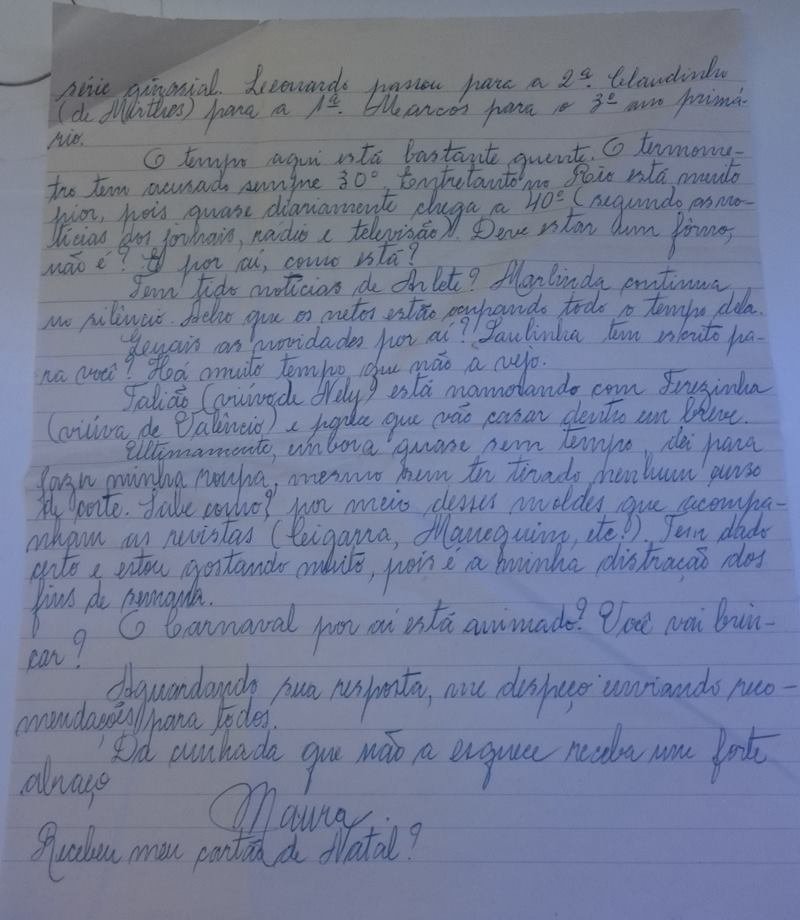 série ginasial. Leonardo passou para a 2ª. Claudinho
(de Mirthes) para a 1ª. Marcos para o 3º ano primá-
rio.
O tempo aqui está bastante quente. O termome-
tro tem acusado sempre 30º. Entretanto no Rio está muito
pior, pois quase diariamente chega a 40º (segundo as no-
tícias dos jornais, rádio e televisão). Deve estar um fôrno,
não é? E por aí, como está?
Tem tido notícias de Arlete? Marlinda continua
no silêncio. Acho que os netos estão ocupando todo o tempo dela.
Quais as novidades por aí? Saulinha tem escrito pa-
ra você? Há muito tempo que não a vejo.
Talião (viúvo de Nely) está namorando com Terezinha
(viúva de Valêncio) e parece que vão casar dentro em breve.
Ultimamente, embora quase sem tempo, dei para
fazer minha roupa, mesmo sem ter tirado nenhum curso
de corte. Sabe como? por meio desses moldes que acompa-
nham as revistas (Cigarra, Manequim, etc.). Tem dado
certo e estou gostando muito, pois é a minha distração dos
fins de semana.
O Carnaval por aí está animado? Você vai brin-
car?
Aguardando sua resposta, me despeço enviando reco-
mendações para todos.
Da cunhada que não a esquece receba um forte
abraço
Maura
Recebeu meu cartão de Natal?